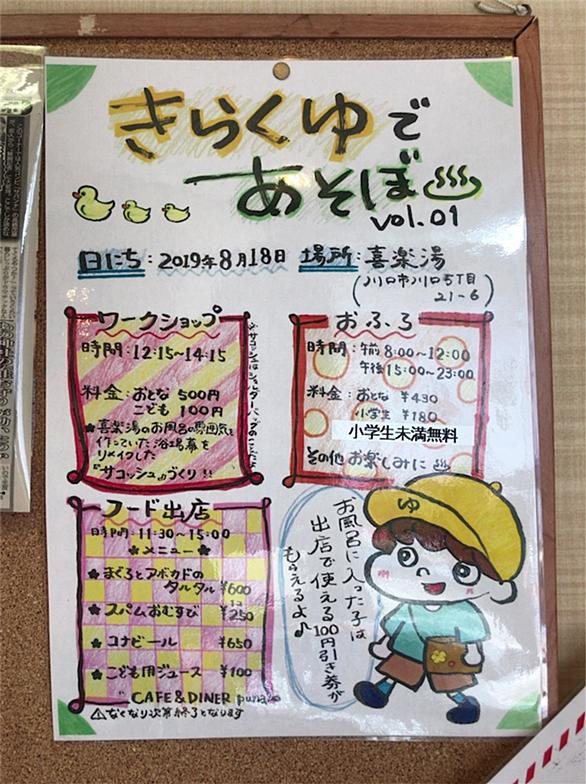 きらくゆで
あそぼ♨
vol.01
日にち:2019年8月18日 場所:喜楽湯
(川口市川口5丁目
21-6)
ワークショップ
時間:12:15~14:15
料金:おとな 500円
こども 100円
★喜楽湯のお風呂の雰囲気を
作っていた浴場幕を
リメイクした
『サコッシュ』づくり!!
おふろ
時間:午前 8:00~12:00
午後 15:00~23:00
料金:おとな ¥430
小学生 ¥180
小学生未満無料
その他お楽しみに♨
フード出店
時間:11:30~15:00
メニュー
まぐろとアボカドの
タルタル ¥600
スパムおむすび ¥250
コナビール ¥650
こども用ジュース ¥100
CAFE&DINER puna
⚠なくなり次第終了となります
お風呂に入った子は
出店で使える100円引き券が
もらえるよ♪
ゆ